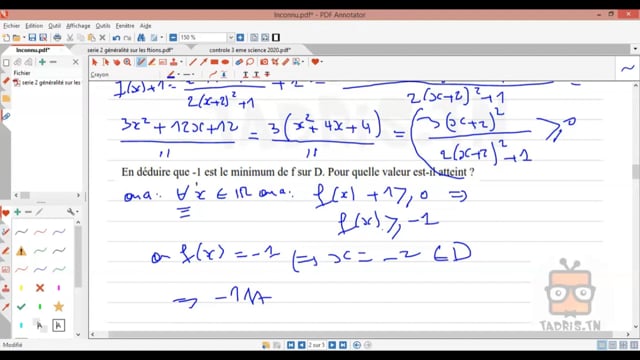 Inconnu.pdf* - PDF Annotator
Fichier Edition Affichage Insérer Outils Fenêtre Aide
150 %
Inconnu.pdf* serie 2 généralité sur les ftions.pdf* controle 3 eme science 2020.pdf*
Signets
Crayon
Fichier
serie 2 généralité sur les
f(x)+1 = + 2 =
2(x+2)²+1 2(x+2)²+1
3x²+12x+12 / '' = 3(x²+4x+4) / '' = 3(x+2)² / 2(x+2)²+1 ≥ 0
En déduire que -1 est le minimum de f sur D. Pour quelle valeur est-il atteint ?
on a : ∀ x ∈ IR on a : f(x) + 1 ≥ 0 ⇒
f(x) ≥ -1
or f(x) = -1 ⇔ x = -2 ∈ D
⇒ -1
TADRIS.TN
Modifié
2 sur 5